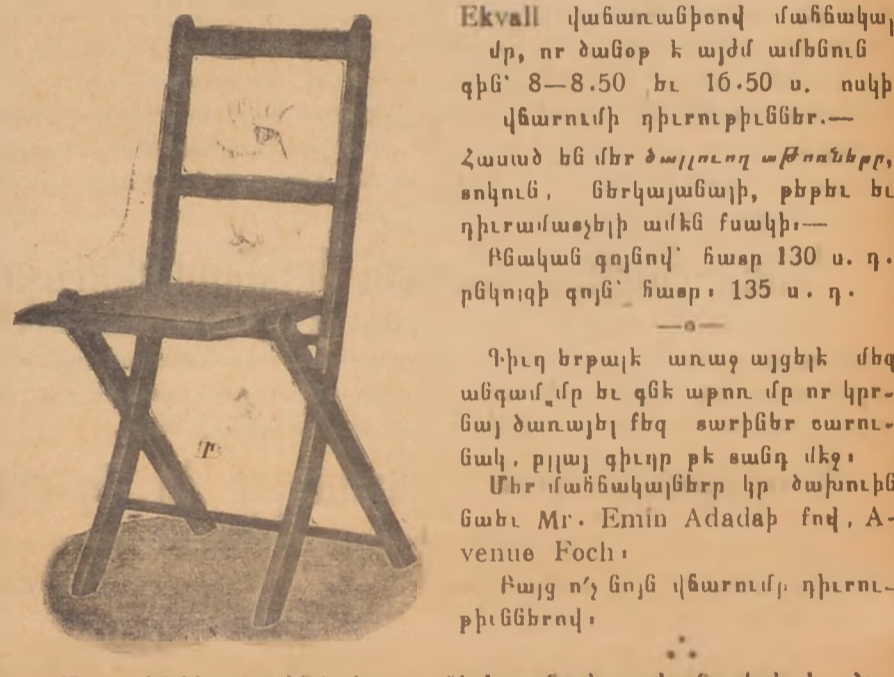 Ekvall վաճառանիշով մահճակալ
մը, որ ծանօթ է այժմ ամենուն
գին՝ 8—8.50 եւ 16.50 ս. ոսկի
վճարումի դիւրութիւններ.—
Հասած են մեր ծալլուող աթոռները,
տոկուն, ներկայանալի, թեթեւ եւ
դիւրամատչելի ամէն քսակի.—
Բնական գոյնով՝ հատը 130 ս. դ.
ընկոյզի գոյն՝ հատը. 135 ս. դ.
Գիւղ երթալէ առաջ այցելէ մեզ
անգամ մը եւ գնէ աթոռ մը որ կըր-
նայ ծառայել քեզ տարիներ շարու-
նակ, ըլլայ գիւղը թէ տանդ մէջ.
Մեր մահճակալները կը ծախուին
նաեւ Mr. Emin Adadaի քով, A-
venue Foch.
Բայց ո՛չ նոյն վճարումը դիւրու-
թիւններով.